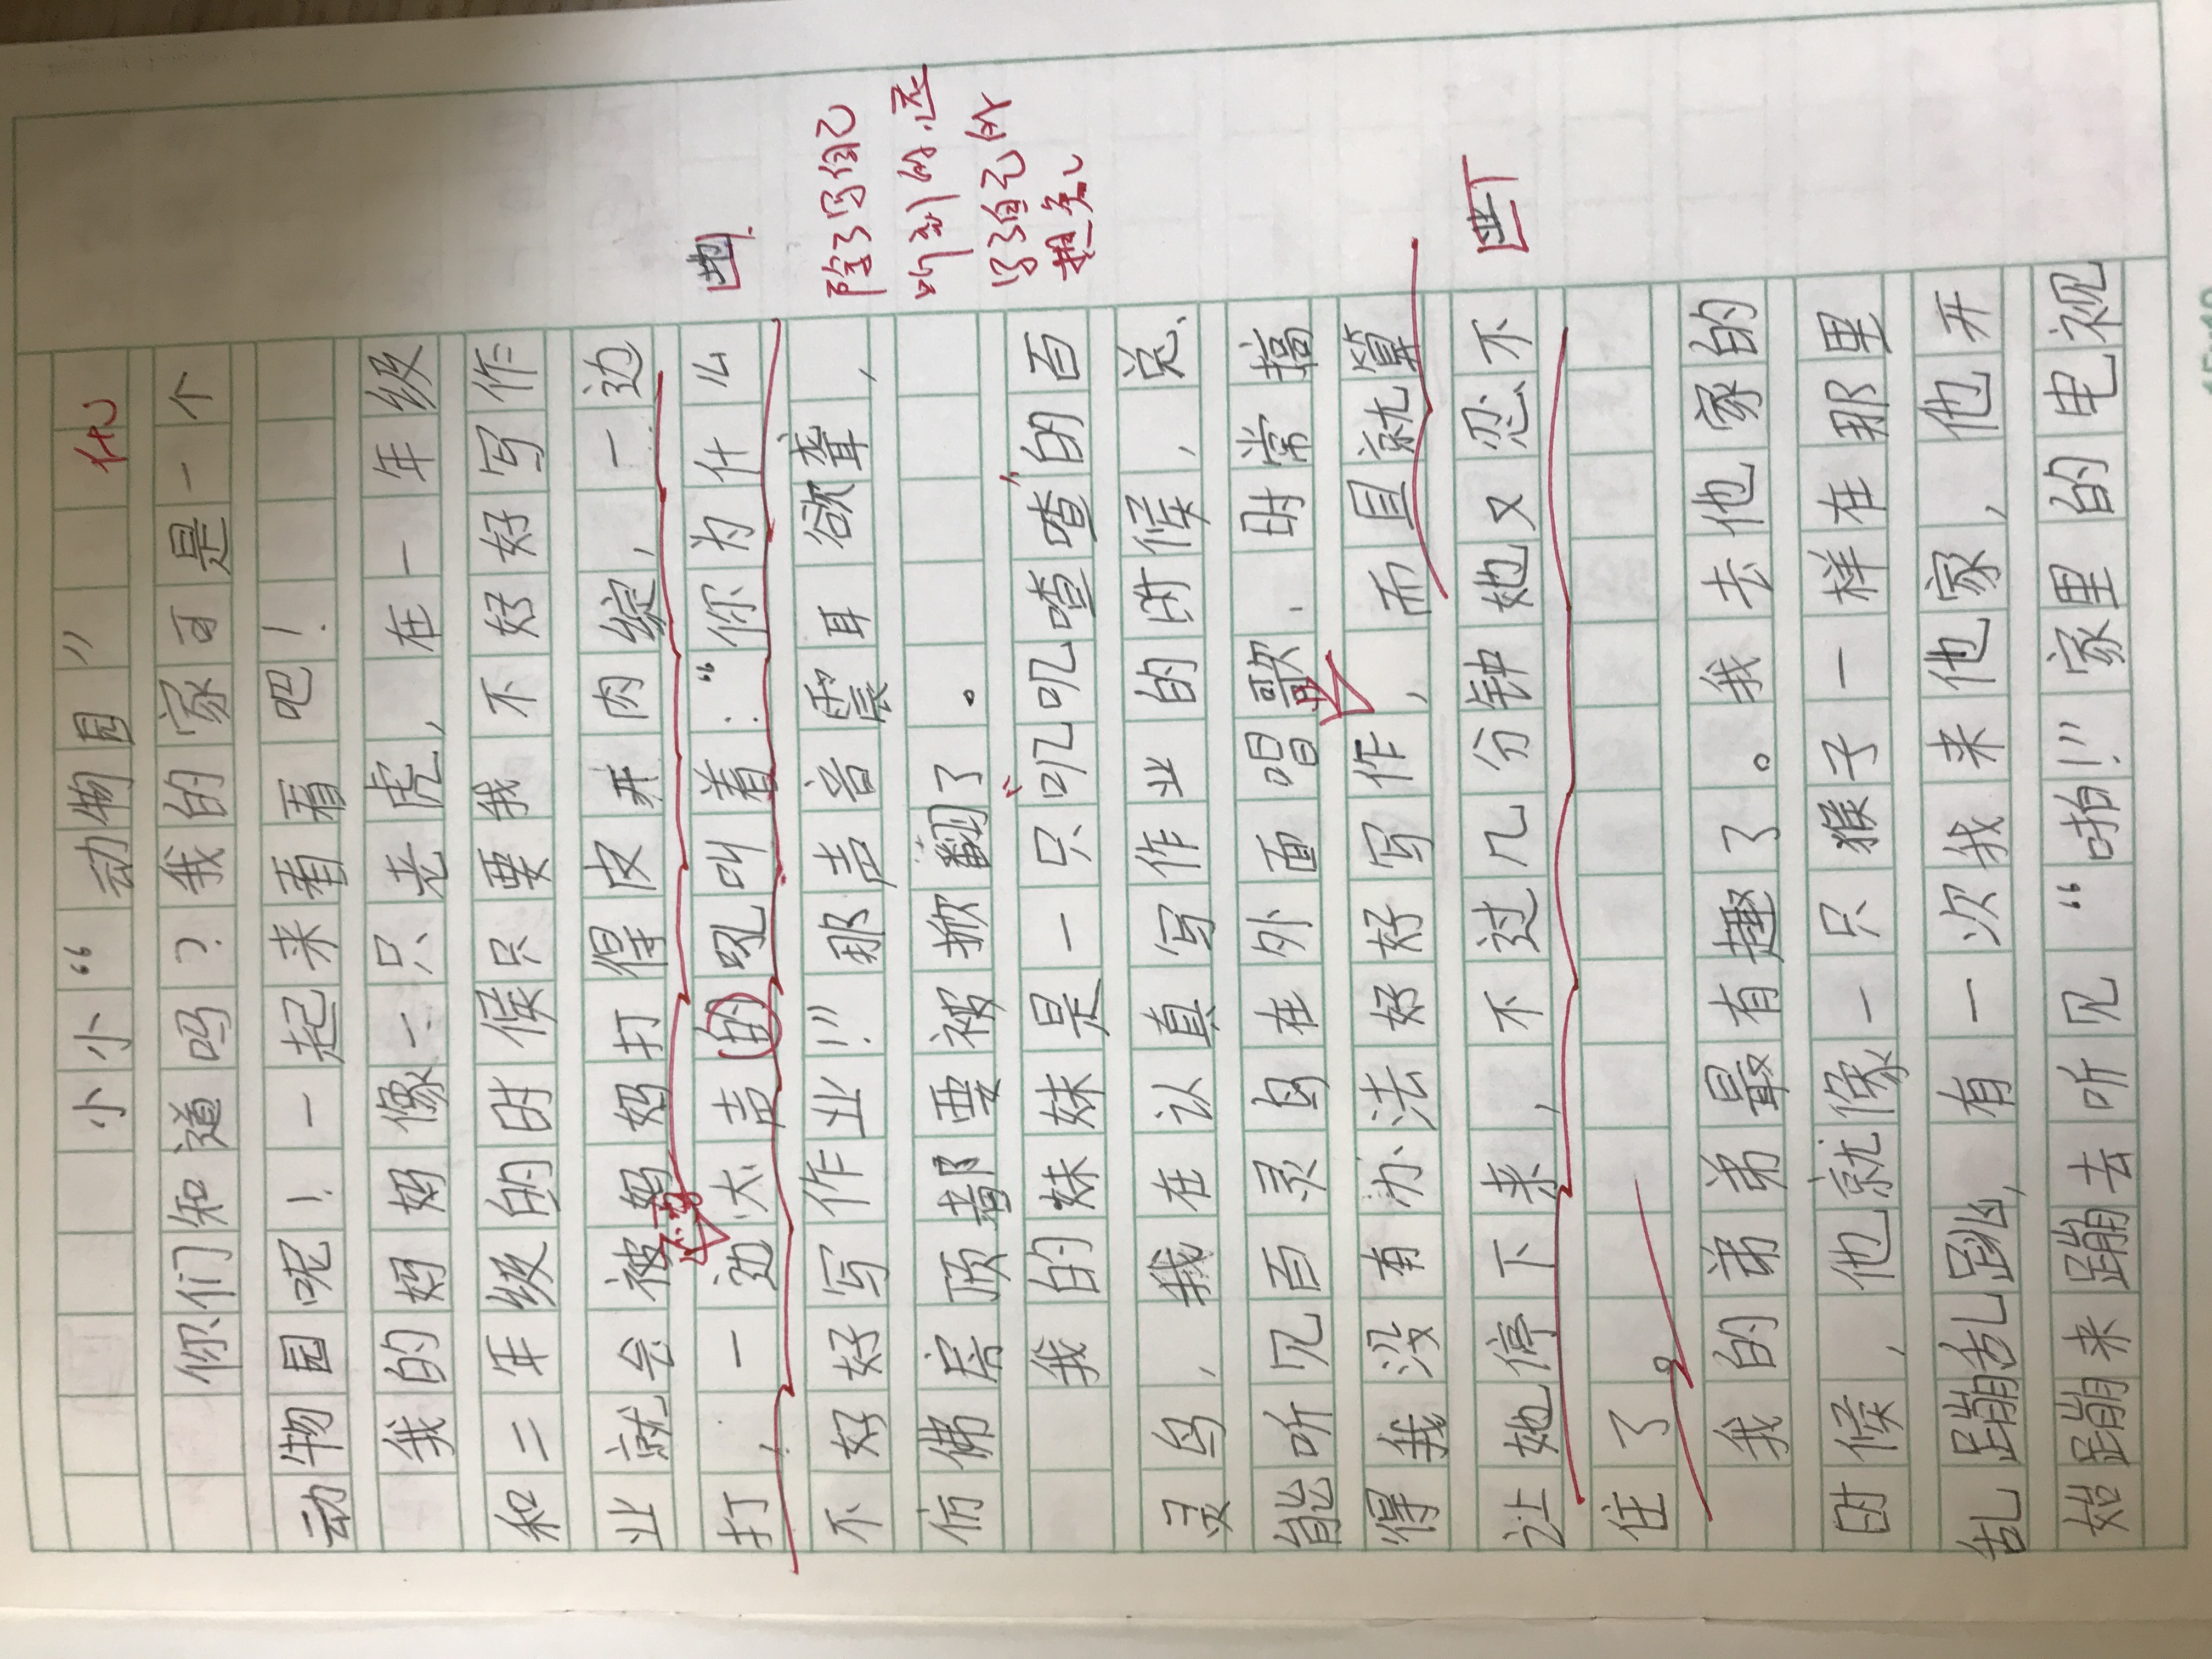 小小“动物园” 优
你们知道吗？我的家可是一个
动物园呢！一起来看看吧！
我的妈妈像一只老虎，在一年级
和二年级的时候只要我不好好写作
业就会被妈妈打得皮开肉绽，一边
打，一边大声的吼叫着：“你为什么
地
不好好写作业！”那声音震耳欲聋，
仿佛房顶都要被掀翻了。
除了写自己
听到的，还
写了自己的
想象
我的妹妹是一只“叽叽喳喳”的百
灵鸟，我在认真写作业的时候，总
能听见百灵鸟在外面唱歌，时常搞
得我没有办法好好写作，而且就算
业
让她停下来，不过几分钟她又忍不
住了。
我的弟弟最有趣了。我去他家的
时候，他就像一只猴子一样在那里
乱蹦乱跳，有一次我来他家，他开
始蹦来蹦去听见“啪！”家里的电视